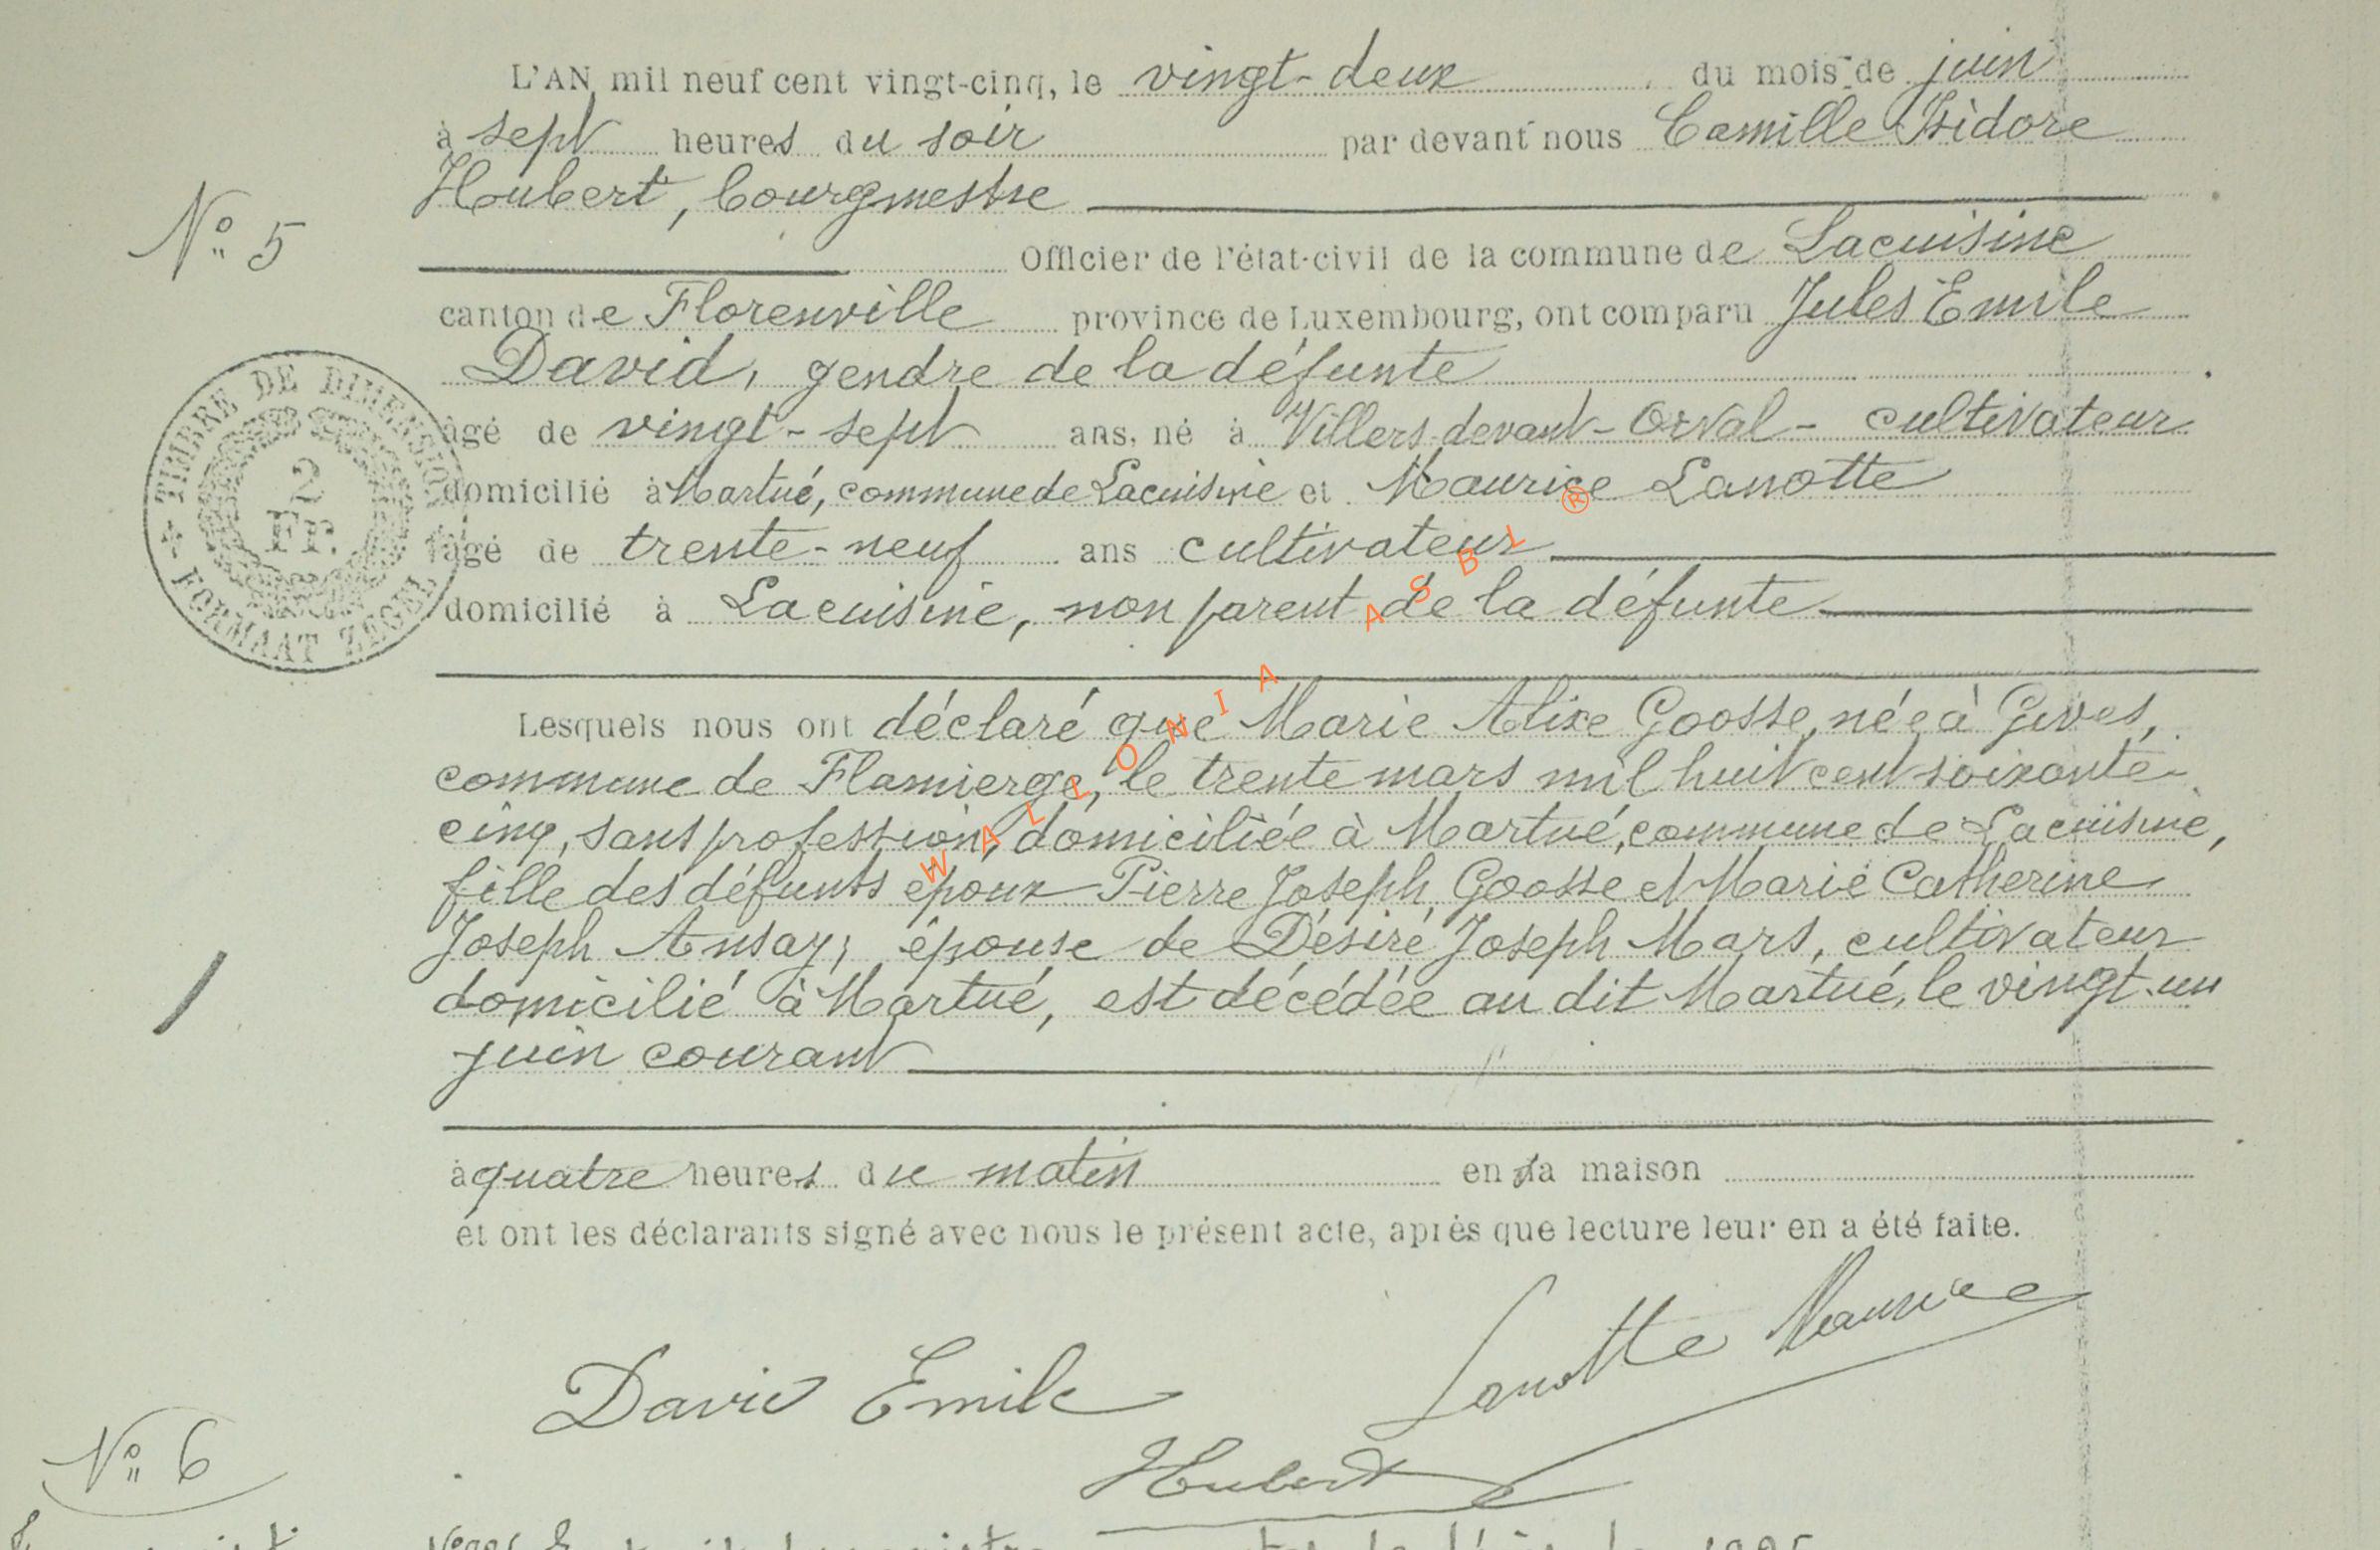 L'AN mil neuf cent vingt-cinq, le vingt-deux du mois de juin
à sept heures du soir par devant nous Camille Isidore
Hubert, bourgmestre
N° 5
Officier de l'état-civil de la commune de Lacuisine
canton de Florenville province de Luxembourg, ont comparu Jules Emile
David, gendre de la défunte
âgé de vingt-sept ans, né à Villers-devant-Orval - cultivateur
domicilié à Martué, commune de Lacuisine et Maurice Lanotte
âgé de trente-neuf ans cultivateur
domicilié à Lacuisine, non parent de la défunte
TIMBRE DE DIMENSION
2
Fr.
FORMAAT ZEGEL
Lesquels nous ont déclaré que Marie Alixe Goosse, née à Gives,
commune de Flamierge, le trente mars mil huit cent soixante-
cinq, sans profession, domiciliée à Martué, commune de Lacuisine,
fille des défunts époux Pierre Joseph Goosse et Marie Catherine
Joseph Ansay, épouse de Désiré Joseph Mars, cultivateur
domicilié à Martué, est décédée au dit Martué, le vingt-un
juin courant
à quatre heures du matin en sa maison
et ont les déclarants signé avec nous le présent acte, après que lecture leur en a été faite.
David Emile
Lanotte Maurice
Hubert
N° 6
WALLONIA ASBL ®